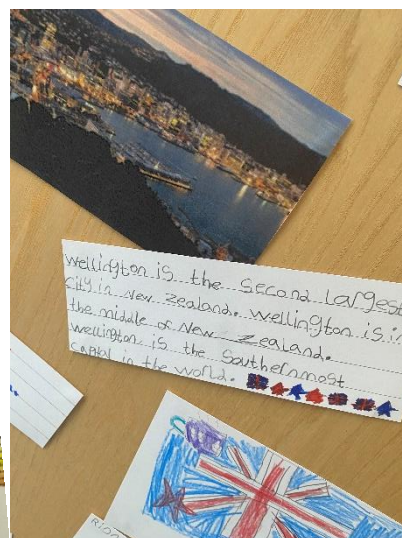 Wellington is the second largest
city in New Zealand. Wellington is i
the middle of New Zealand.
Wellington is the Southernmost
capital in the world.